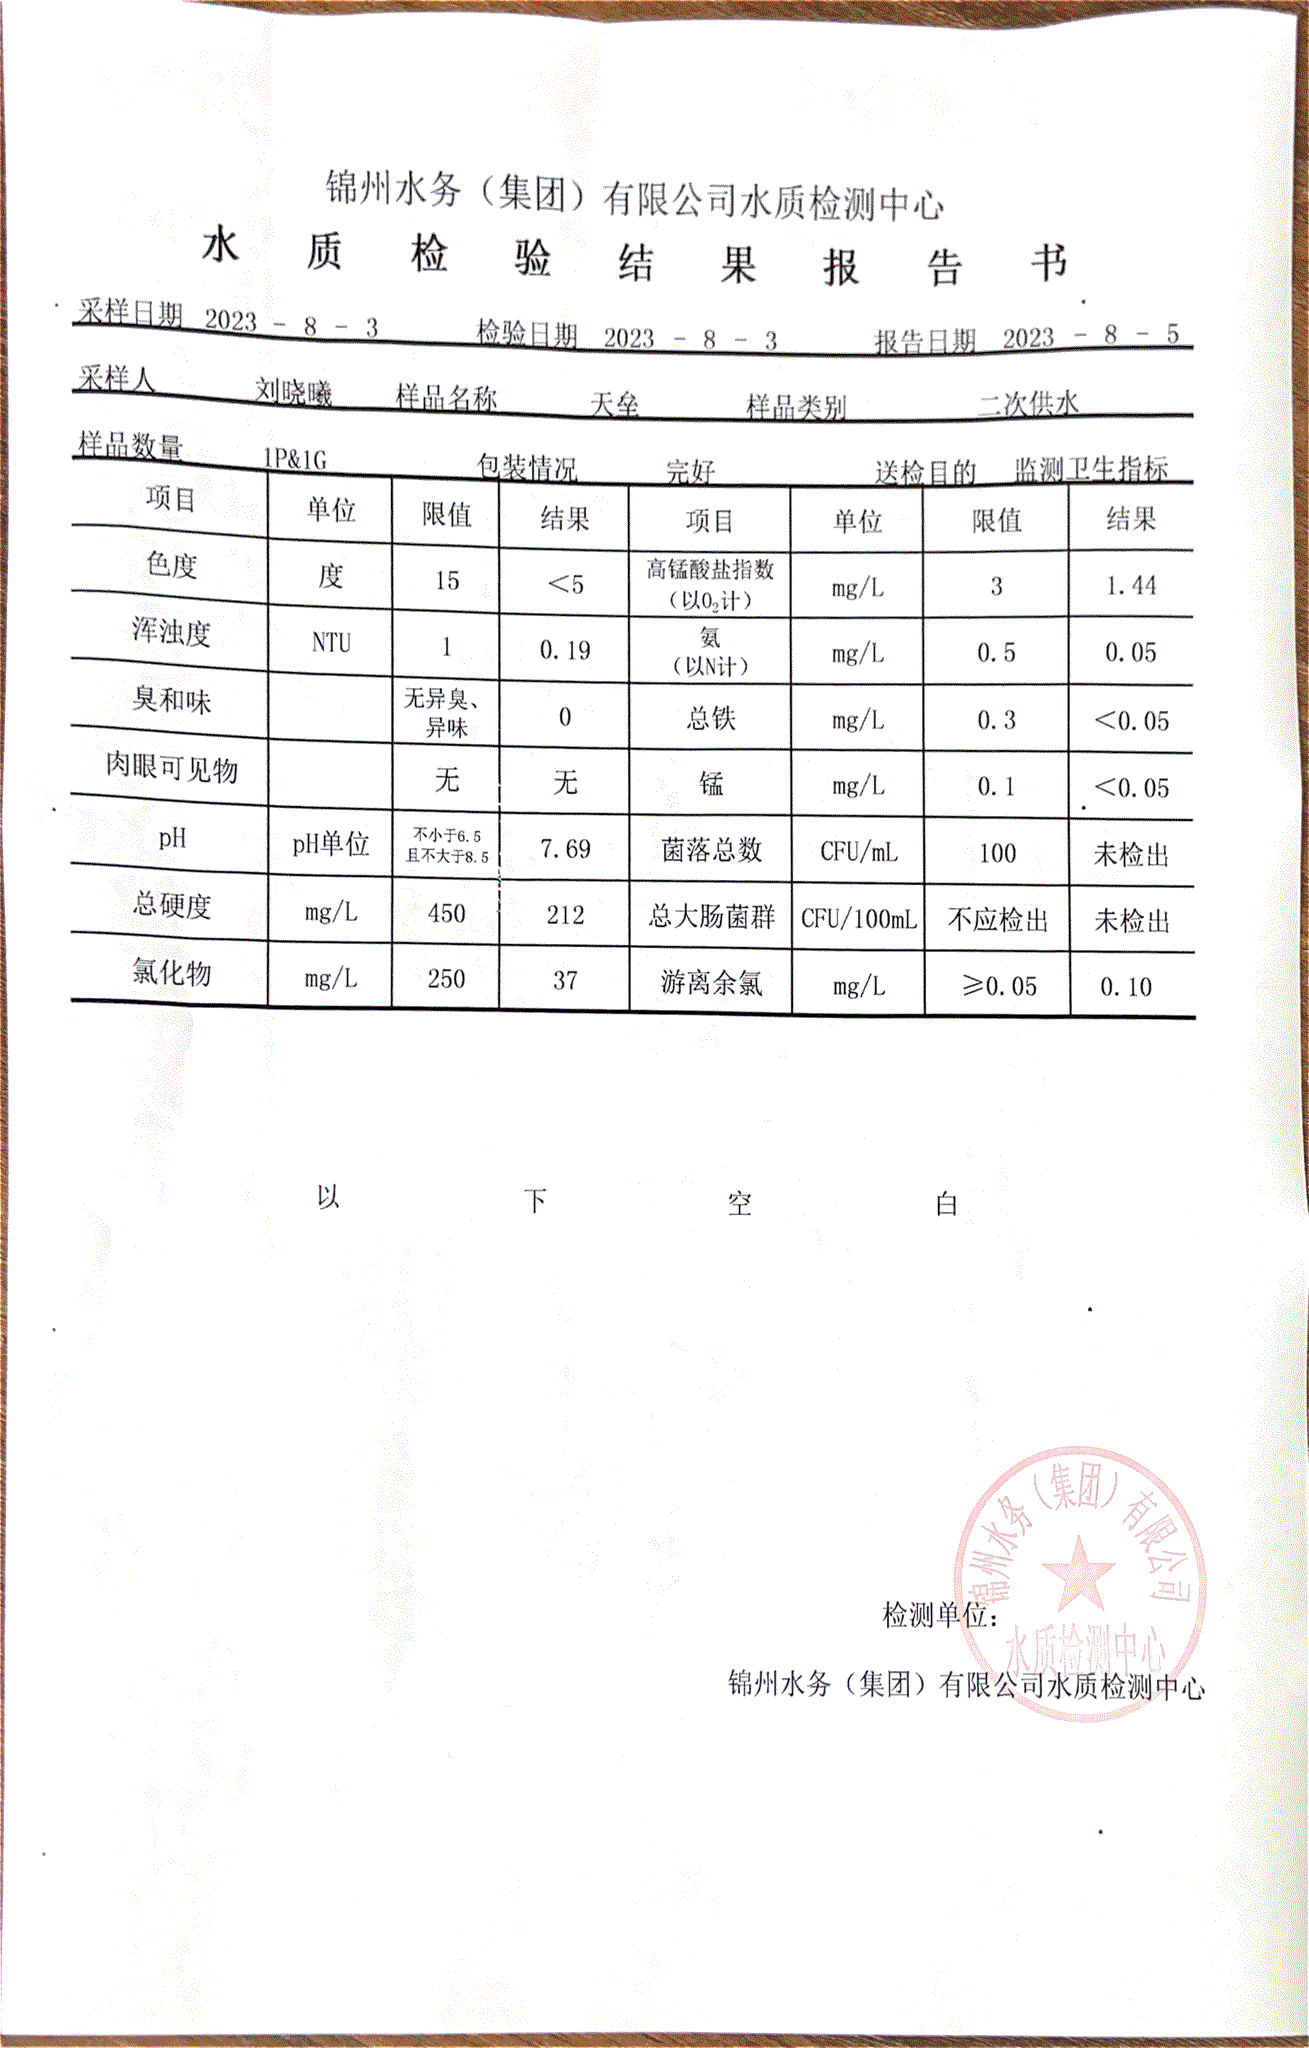 锦州水务（集团）有限公司水质检测中心
水质检验结果报告书
采样日期 2023-8-3 检验日期 2023-8-3 报告日期 2023-8-5
采样人 刘晓曦 样品名称 天垒 样品类别 二次供水
样品数量 1P&1G 包装情况 完好 送检目的 监测卫生指标
项目 单位 限值 结果 项目 单位 限值 结果
色度 度 15 <5 高锰酸盐指数（以O₂计） mg/L 3 1.44
浑浊度 NTU 1 0.19 氨（以N计） mg/L 0.5 0.05
臭和味 无异臭、异味 0 总铁 mg/L 0.3 <0.05
肉眼可见物 无 无 锰 mg/L 0.1 <0.05
pH pH单位 不小于6.5且不大于8.5 7.69 菌落总数 CFU/mL 100 未检出
总硬度 mg/L 450 212 总大肠菌群 CFU/100mL 不应检出 未检出
氯化物 mg/L 250 37 游离余氯 mg/L ≥0.05 0.10
以下空白
锦州水务（集团）有限公司
检测单位：
水质检测中心
锦州水务（集团）有限公司水质检测中心